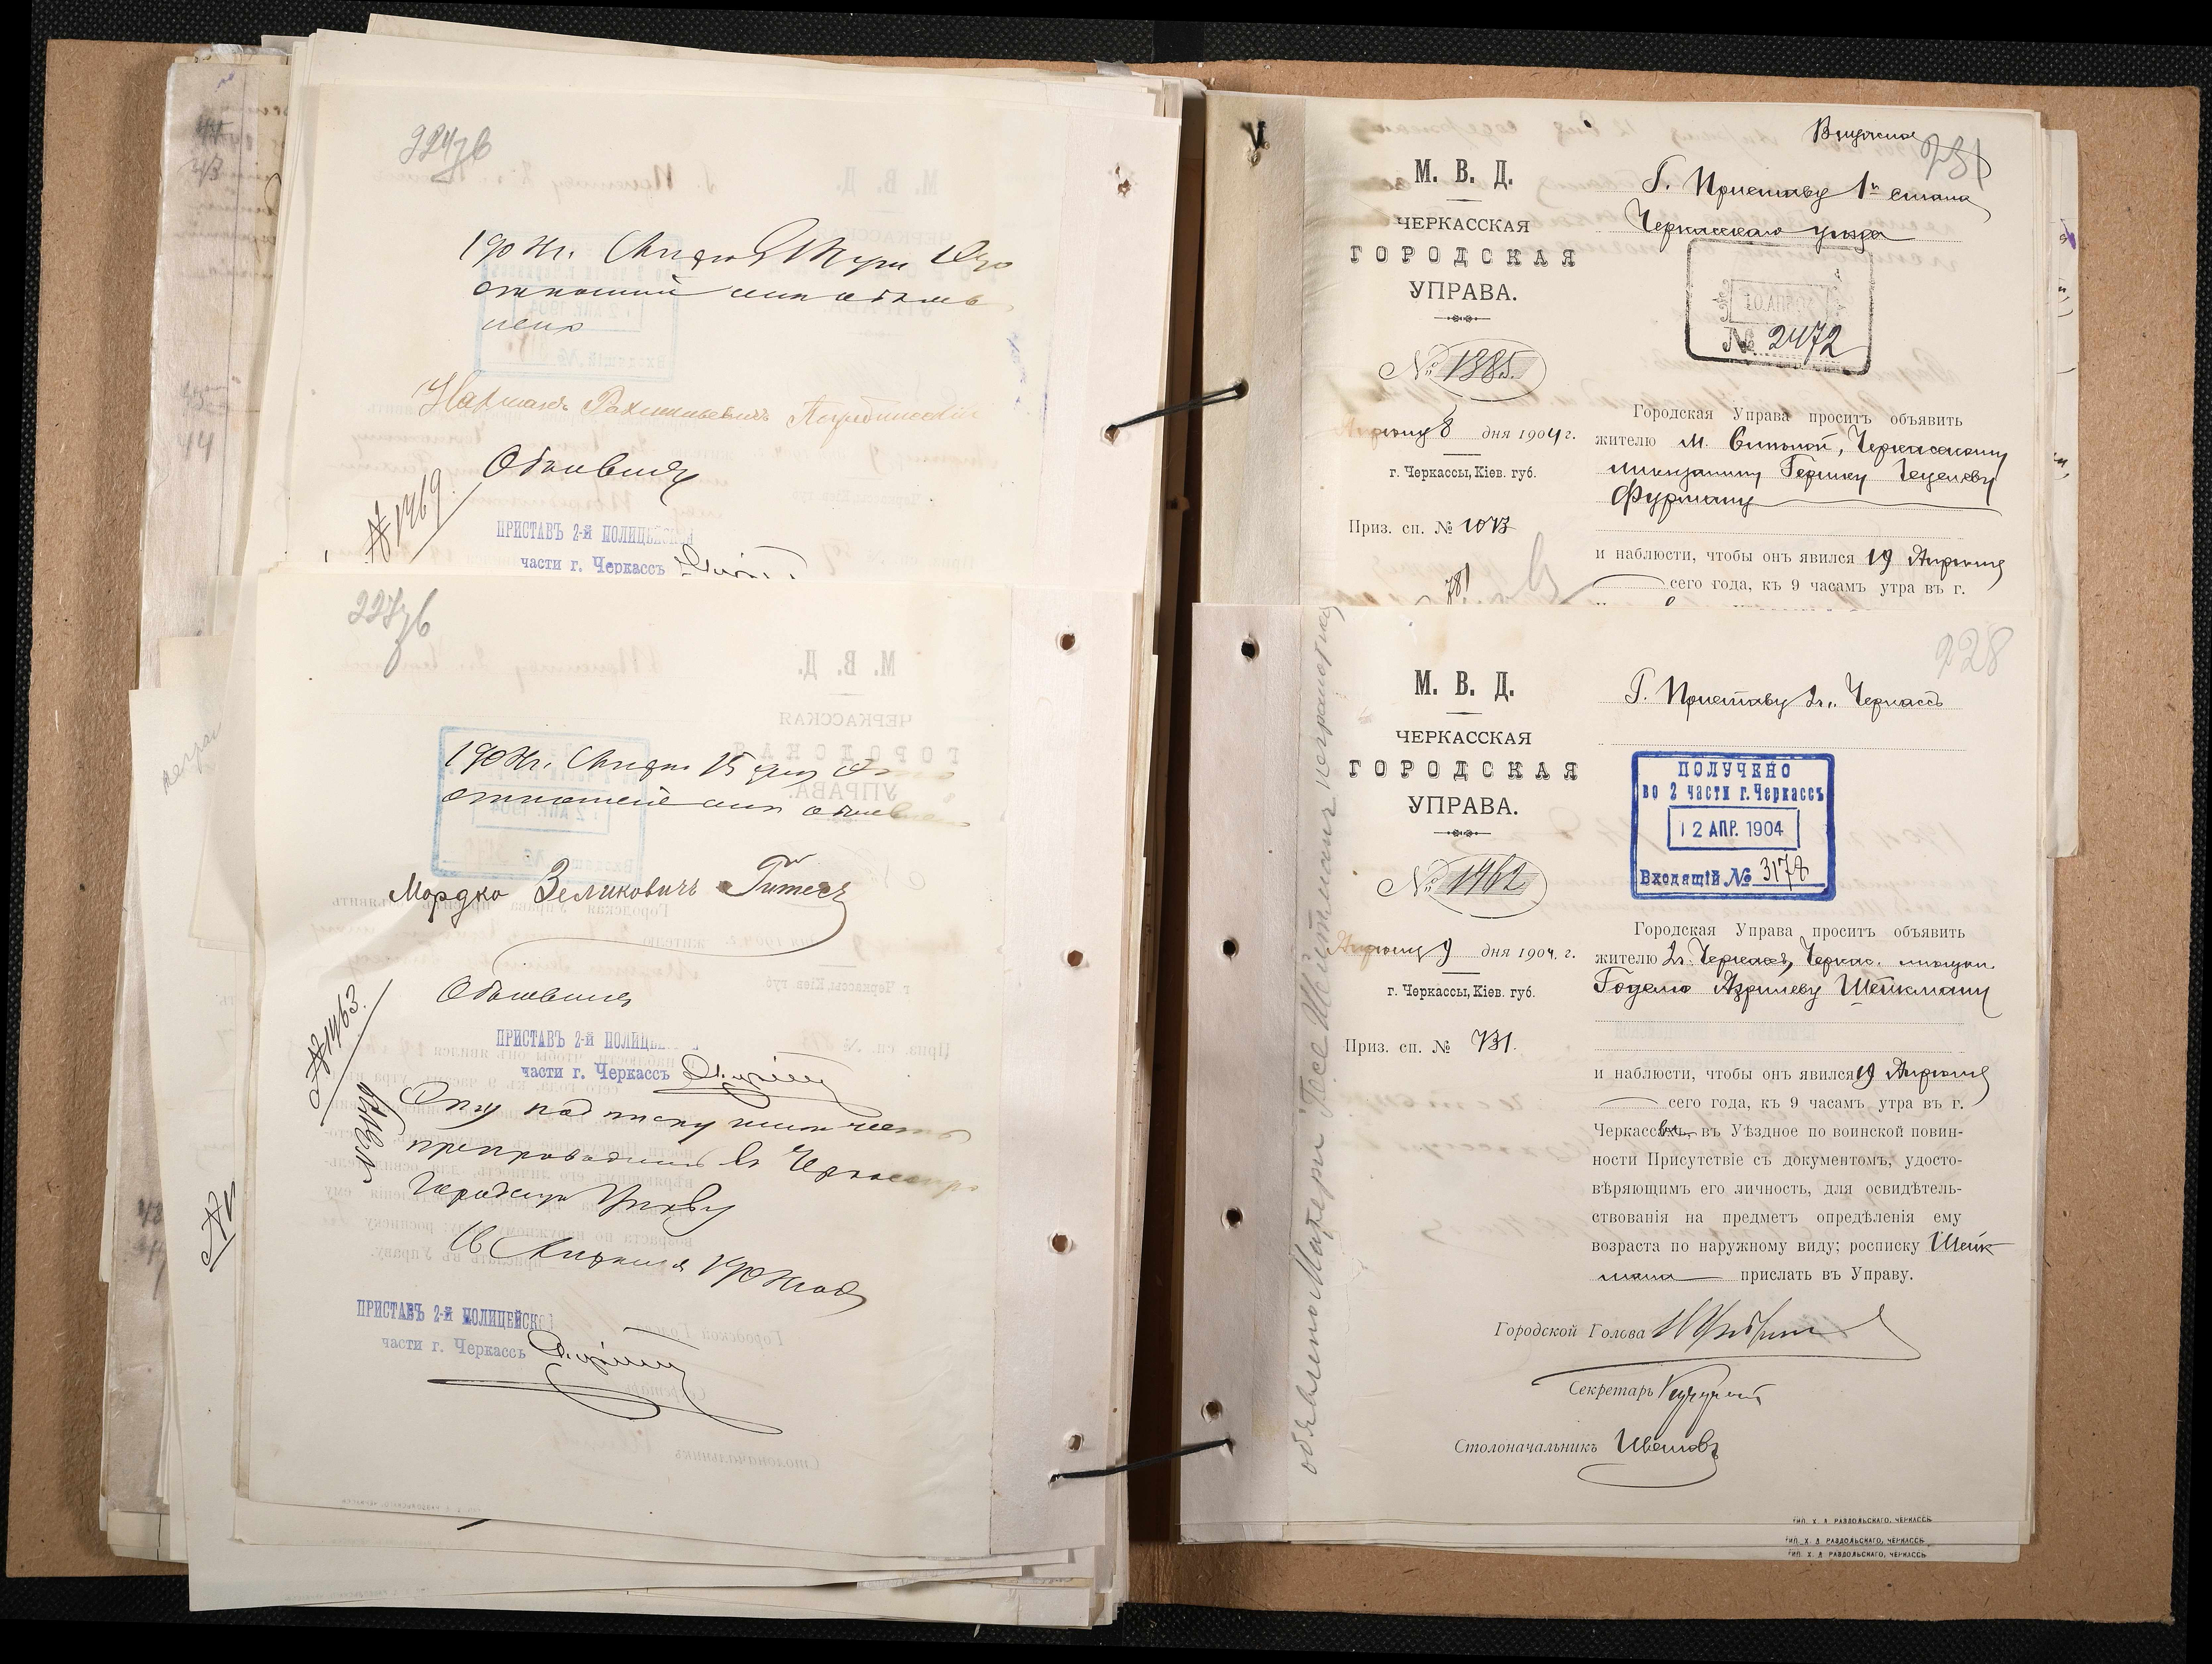 224об
1904г. Апреля
отношеніе мнѣ объявлено
Объявилъ
№ 1469.
ПРИСТАВЪ 2-й ПОЛИЦЕЙСКОЙ
части г. Черкассъ
227об
1904г. Апреля 15 дня
отношеніе мнѣ объявлено
Мордко Зеликовичъ
Объявилъ
№ 1463.
ПРИСТАВЪ 2-й ПОЛИЦЕ
части г. Черкассъ
Сію подписку имѣю честь
препроводить въ Черкасскую
Городскую Управу
16 Апреля 1904 года
ПРИСТАВЪ 2-й ПОЛИЦЕЙСКОЙ
части г. Черкассъ
231
М. В. Д.
ЧЕРКАССКАЯ
ГОРОДСКАЯ
УПРАВА.
№ 1385.
Апреля 8 дня 1904 г.
г. Черкассы, Кіев. губ.
Приз. сп. № 1073
781
Г. Приставу 1го стана
Черкасскаго уѣзда
№ 2472
Городская Управа проситъ объявить
жителю м. Смѣлой, Черкасскому
мѣщанину Гершку
Фурману
и наблюсти, чтобы онъ явился 19 Апреля
сего года, къ 9 часамъ утра въ г.
228
М. В. Д.
ЧЕРКАССКАЯ
ГОРОДСКАЯ
УПРАВА.
№ 1462
Апреля 9 дня 1904. г.
г. Черкассы, Кіев. губ.
Приз. сп. № 731.
объявлено Матери Песе Шейкманъ неграмотная
Г. Приставу 2ч. Черкассъ
ПОЛУЧЕНО
во 2 части г. Черкассъ
12 АПР. 1904
Входящій № 3178
Городская Управа проситъ объявить
жителю г. Черкассъ, Черкас. мѣщан.
Годелю Азрилеву Шейкману
и наблюсти, чтобы онъ явился 19 Апреля
сего года, къ 9 часамъ утра въ г.
Черкассахъ въ Уѣздное по воинской повин-
ности Присутствіе съ документомъ, удосто-
вѣряющимъ его личность, для освидѣтель-
ствованія на предметъ опредѣленія ему
возраста по наружному виду; росписку Шейк
мана прислать въ Управу.
Городской Голова
Секретарь
Столоначальникъ
ТИП. Х. А. РАЗДОЛЬСКАГО, ЧЕРКАССЪ
ТИП. Х. А. РАЗДОЛЬСКАГО, ЧЕРКАССЪ
ТИП. Х. А. РАЗДОЛЬСКАГО, ЧЕРКАССЪ